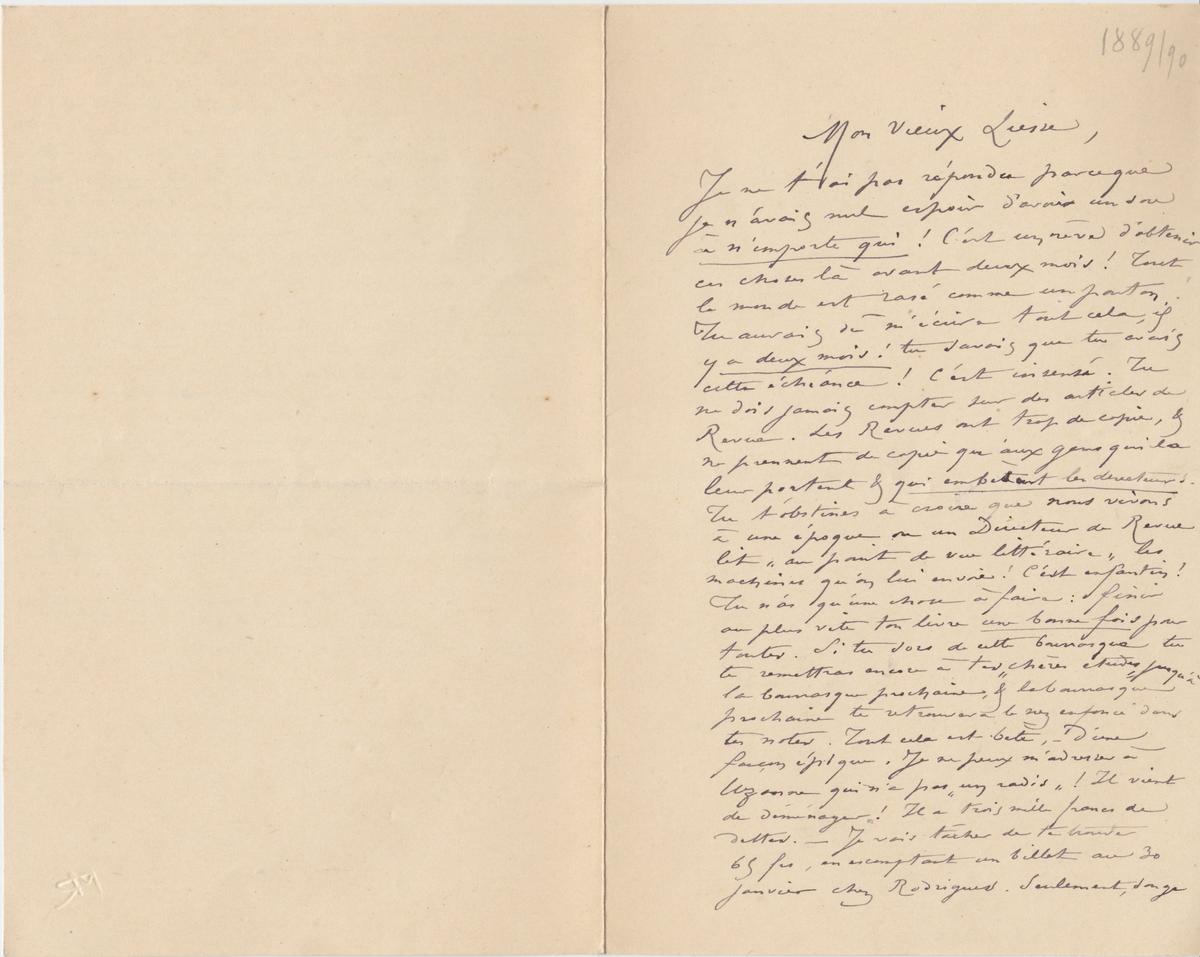 1889/90
Mon vieux Liesse,
Je ne t'ai pas répondu parceque
je n'avais nul espoir d'avoir un sou
à n'importe qui ! C'est un rêve d'obtenir
ces choses là avant deux mois ! Tout
le monde est rasé comme un ponton.
Tu aurais dû m'écrire tout cela, il
y a deux mois ! tu savais que tu avais
cette échéance ! C'est insensé. Tu
ne dois jamais compter sur des articles de
Revue. Les Revues ont trop de copie, &
ne prennent de copie qu'aux gens qui la
leur portent & qui embêtent les directeurs.
Tu t'obstines à croire que nous vivons
à une époque ou un Directeur de Revue
lit „ au point de vue littéraire „ les
machines qu'on lui envoie ! C'est enfantin !
Tu n'as qu'une chose à faire : finir
au plus vite ton livre une bonne fois pour
toutes. Si tu sors de cette bourrasque tu
te remettras encore à tes „ chères études „ jusqu'à
la bourrasque prochaine, & la bourrasque
prochaine te retrouvera le nez enfoncé dans
tes notes. Tout cela est bête, — D'une
façon épique. Je ne peux m'adresser à
Uzanne qui n'a pas „ un radis „ ! Il vient
de déménager ! Il a trois mille francs de
dettes. — Je vais tâcher de te trouver
65 frs, en escomptant un billet au 30
janvier chez Rodrigues. Seulement, songe